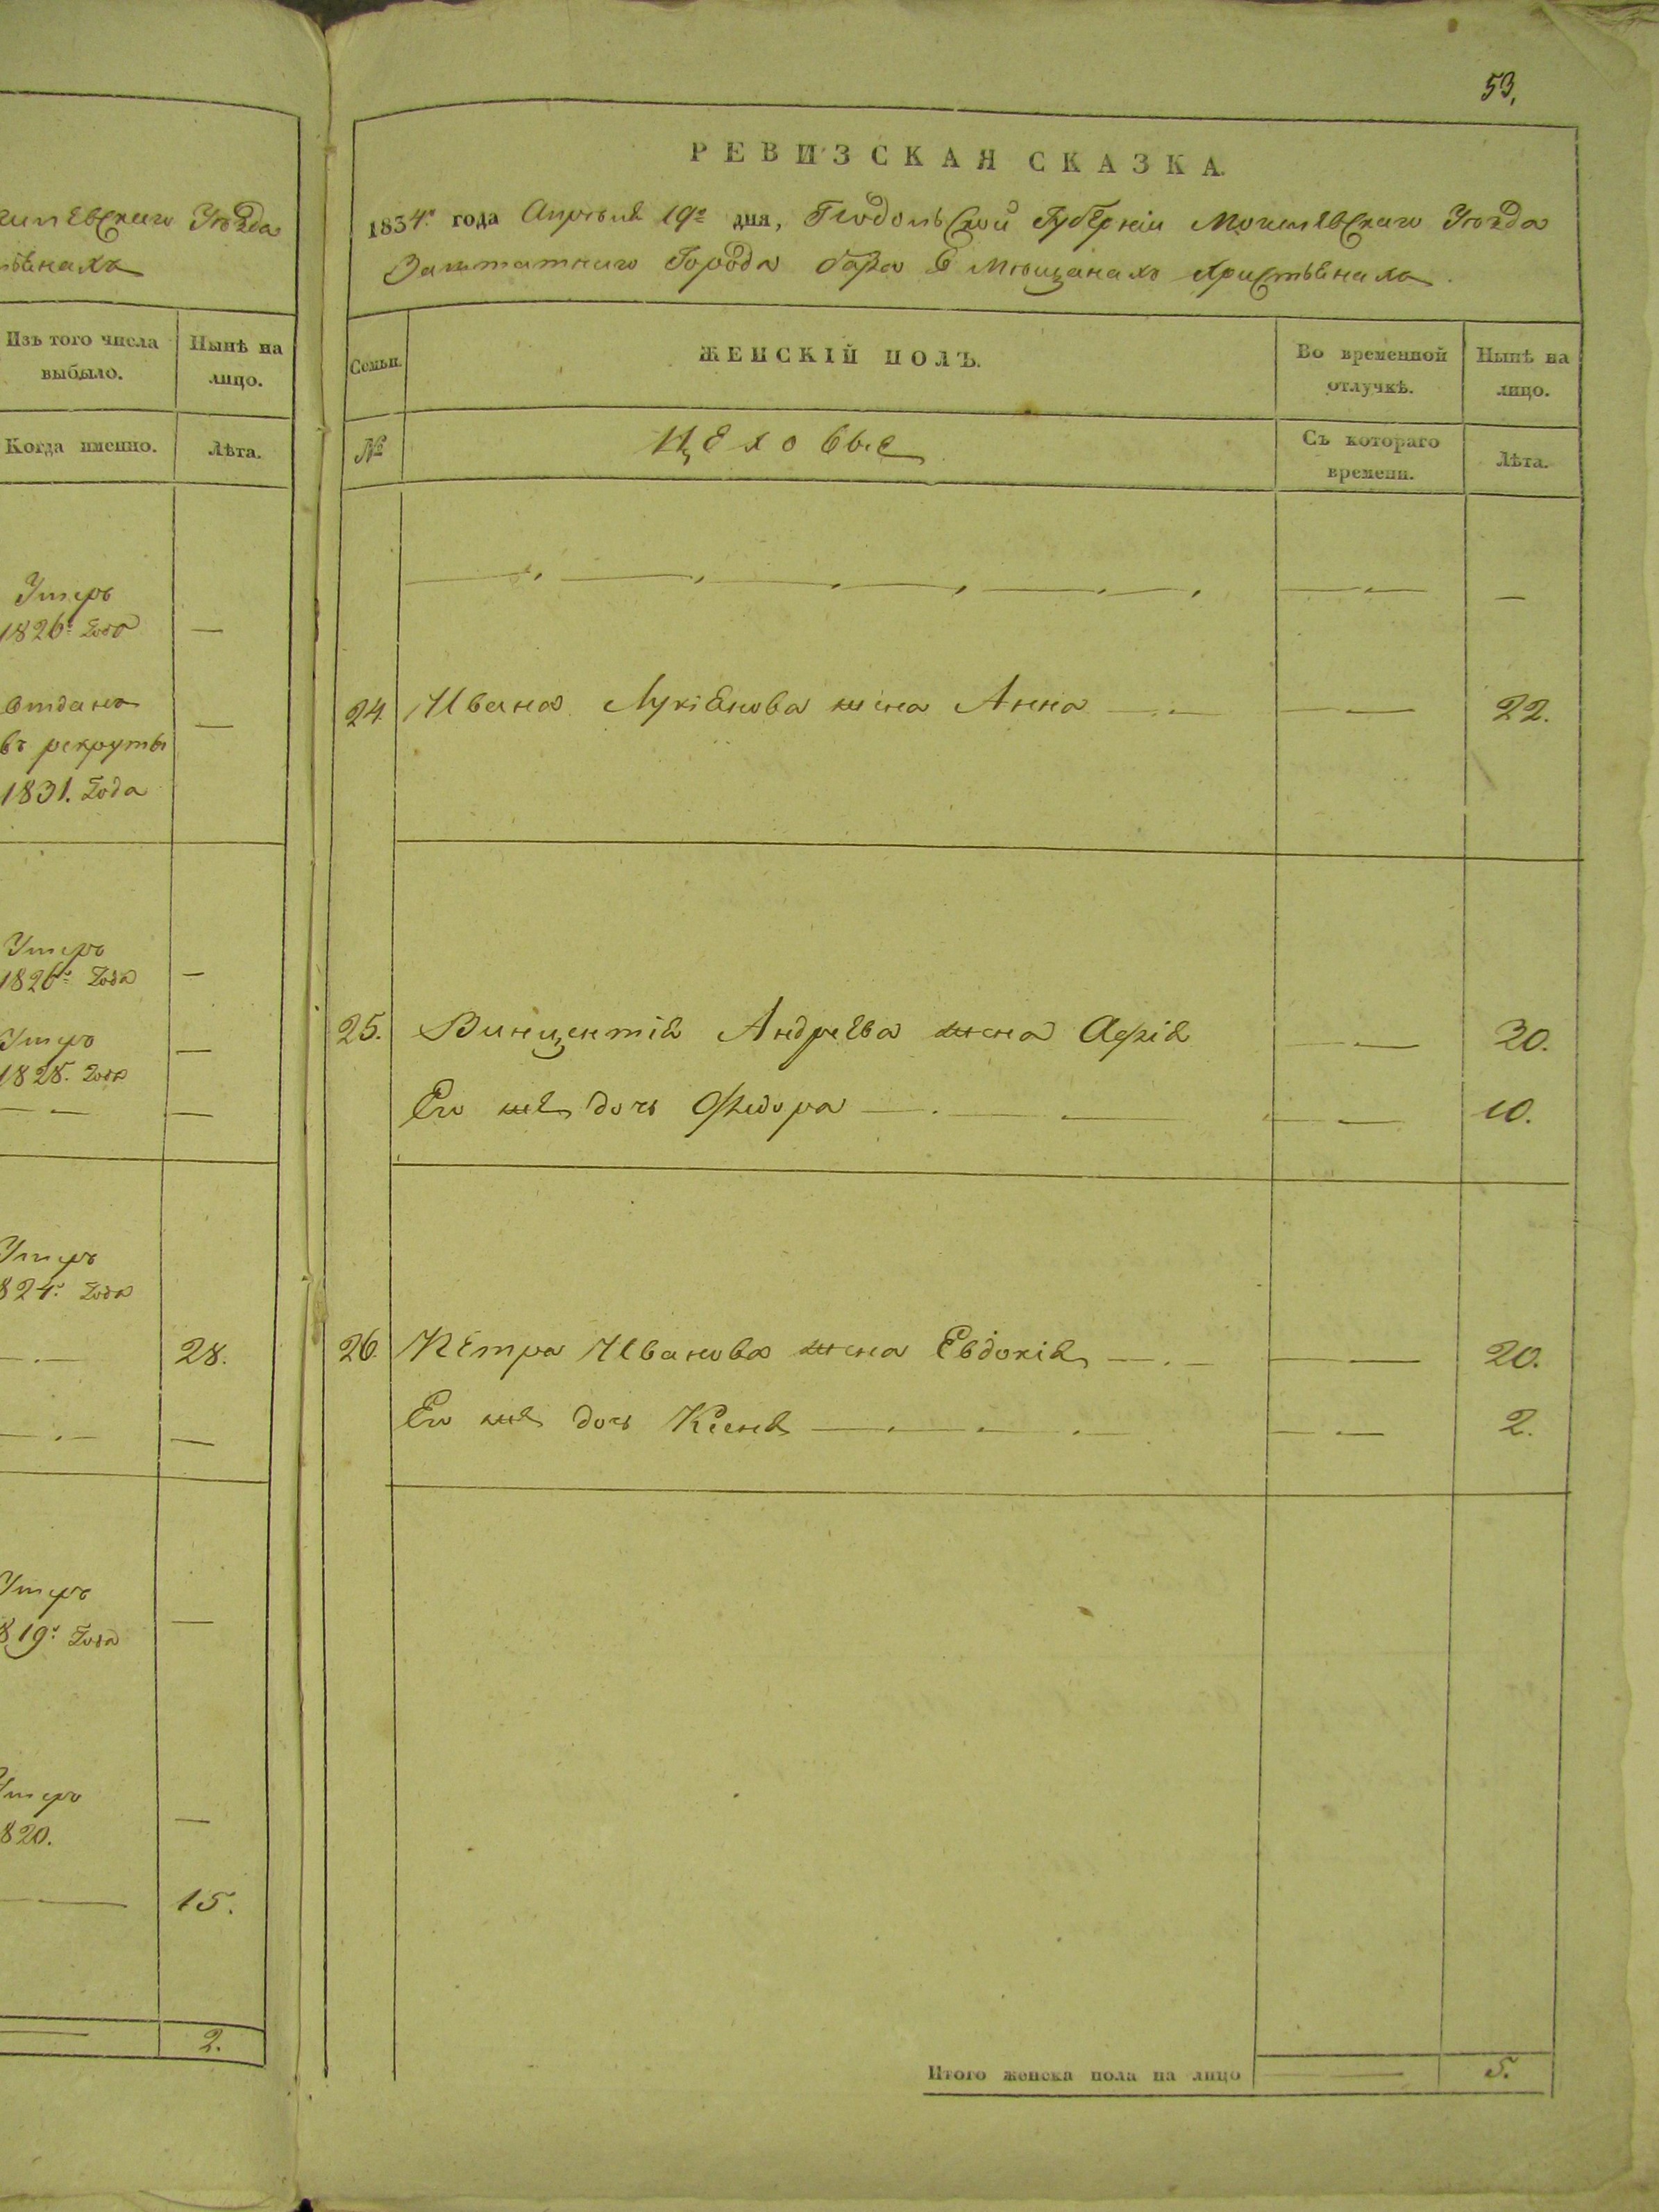 гилевскаго Уѣзда
тьянахъ
Изъ того числа выбыло.
Нынѣ на лицо.
Когда именно.
Лѣта.
Умеръ
1826. года
—
Отданъ
въ рекруты
1831. года
—
Умеръ
1826. года
—
Умеръ
1828. года
—
— —
—
Умеръ
824. года
— . —
28.
— . —
—
Умеръ
819. года
—
Умеръ
820.
—
— —
15.
—
2.
53,
РЕВИЗСКАЯ СКАЗКА.
1834. года Апрѣля 19го дня, Подольской Губерніи Могилевскаго Уѣзда
Заштатнаго Города Бара О Мѣщанахъ Христьянахъ.
Семьи.
ЖЕНСКІЙ ПОЛЪ.
Во временной отлучкѣ.
Нынѣ на лицо.
№
Цеховые
Съ котораго времени.
Лѣта.
24. Ивана Лукіянова жена Анна — . — — — 22.
25. Винцентія Андреева жена Афія — — 30.
Его же дочь Федора — . — — — — 10.
26. Петра Иванова жена Евдокія — . — — — 20.
Его же дочь Ксеня — . — . — . — — — 2.
Итого женска пола на лицо — 5.